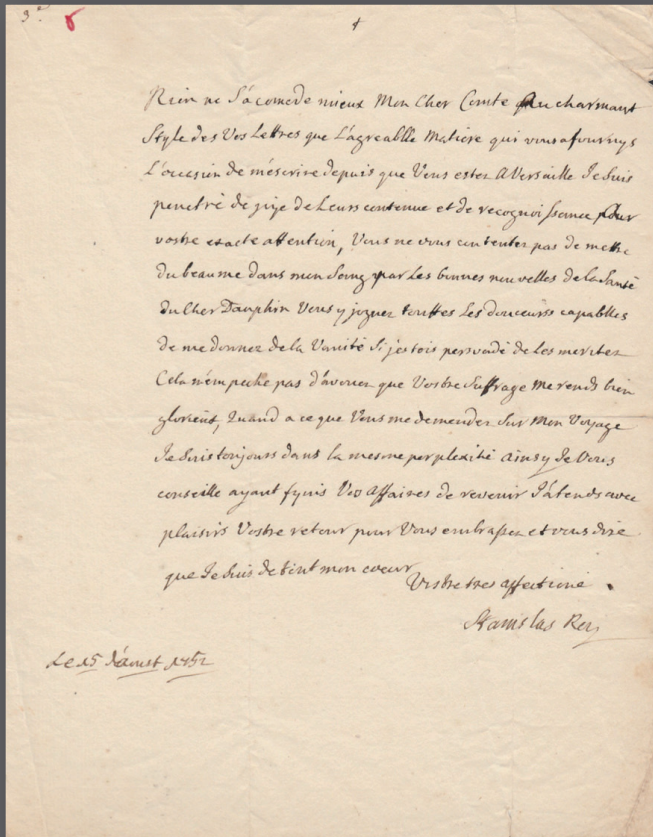 3e 6
4
Rien ne S'acomode mieux Mon Cher Comte au charmant
Style des Vos Lettres que L'agreablle Matiere qui vous a fournys
L'occasion de m'escrire depuis que Vous estez a Versaille Je suis
penetré de joye de Leurs contenue et de recognoissance pour
vostre exacte attention, Vous ne vous contentez pas de mettre
du beaume dans mon Sang par Les bonnes nouvelles de la Santé
du Cher Dauphin Vous y joignez touttes Les douceurs capablles
de me donner de la Vanité Si j'estois persuadé de Les meriter
Cela n'empeche pas d'avouer que Vostre Suffrage me rends bien
glorieux, Quand a ce que Vous me demandez Sur Mon Voyage
Je suis toujours dans la mesme perplexité ainsy Je Vous
conseille ayant fynis Vos Affaires de revenir J'atends avec
plaisirs Vostre retour pour Vous embrasser et vous dire
que Je suis de tout mon coeur
Vostre tres affectioné
Stanislas Roy
Le 15 d'aoust 1752